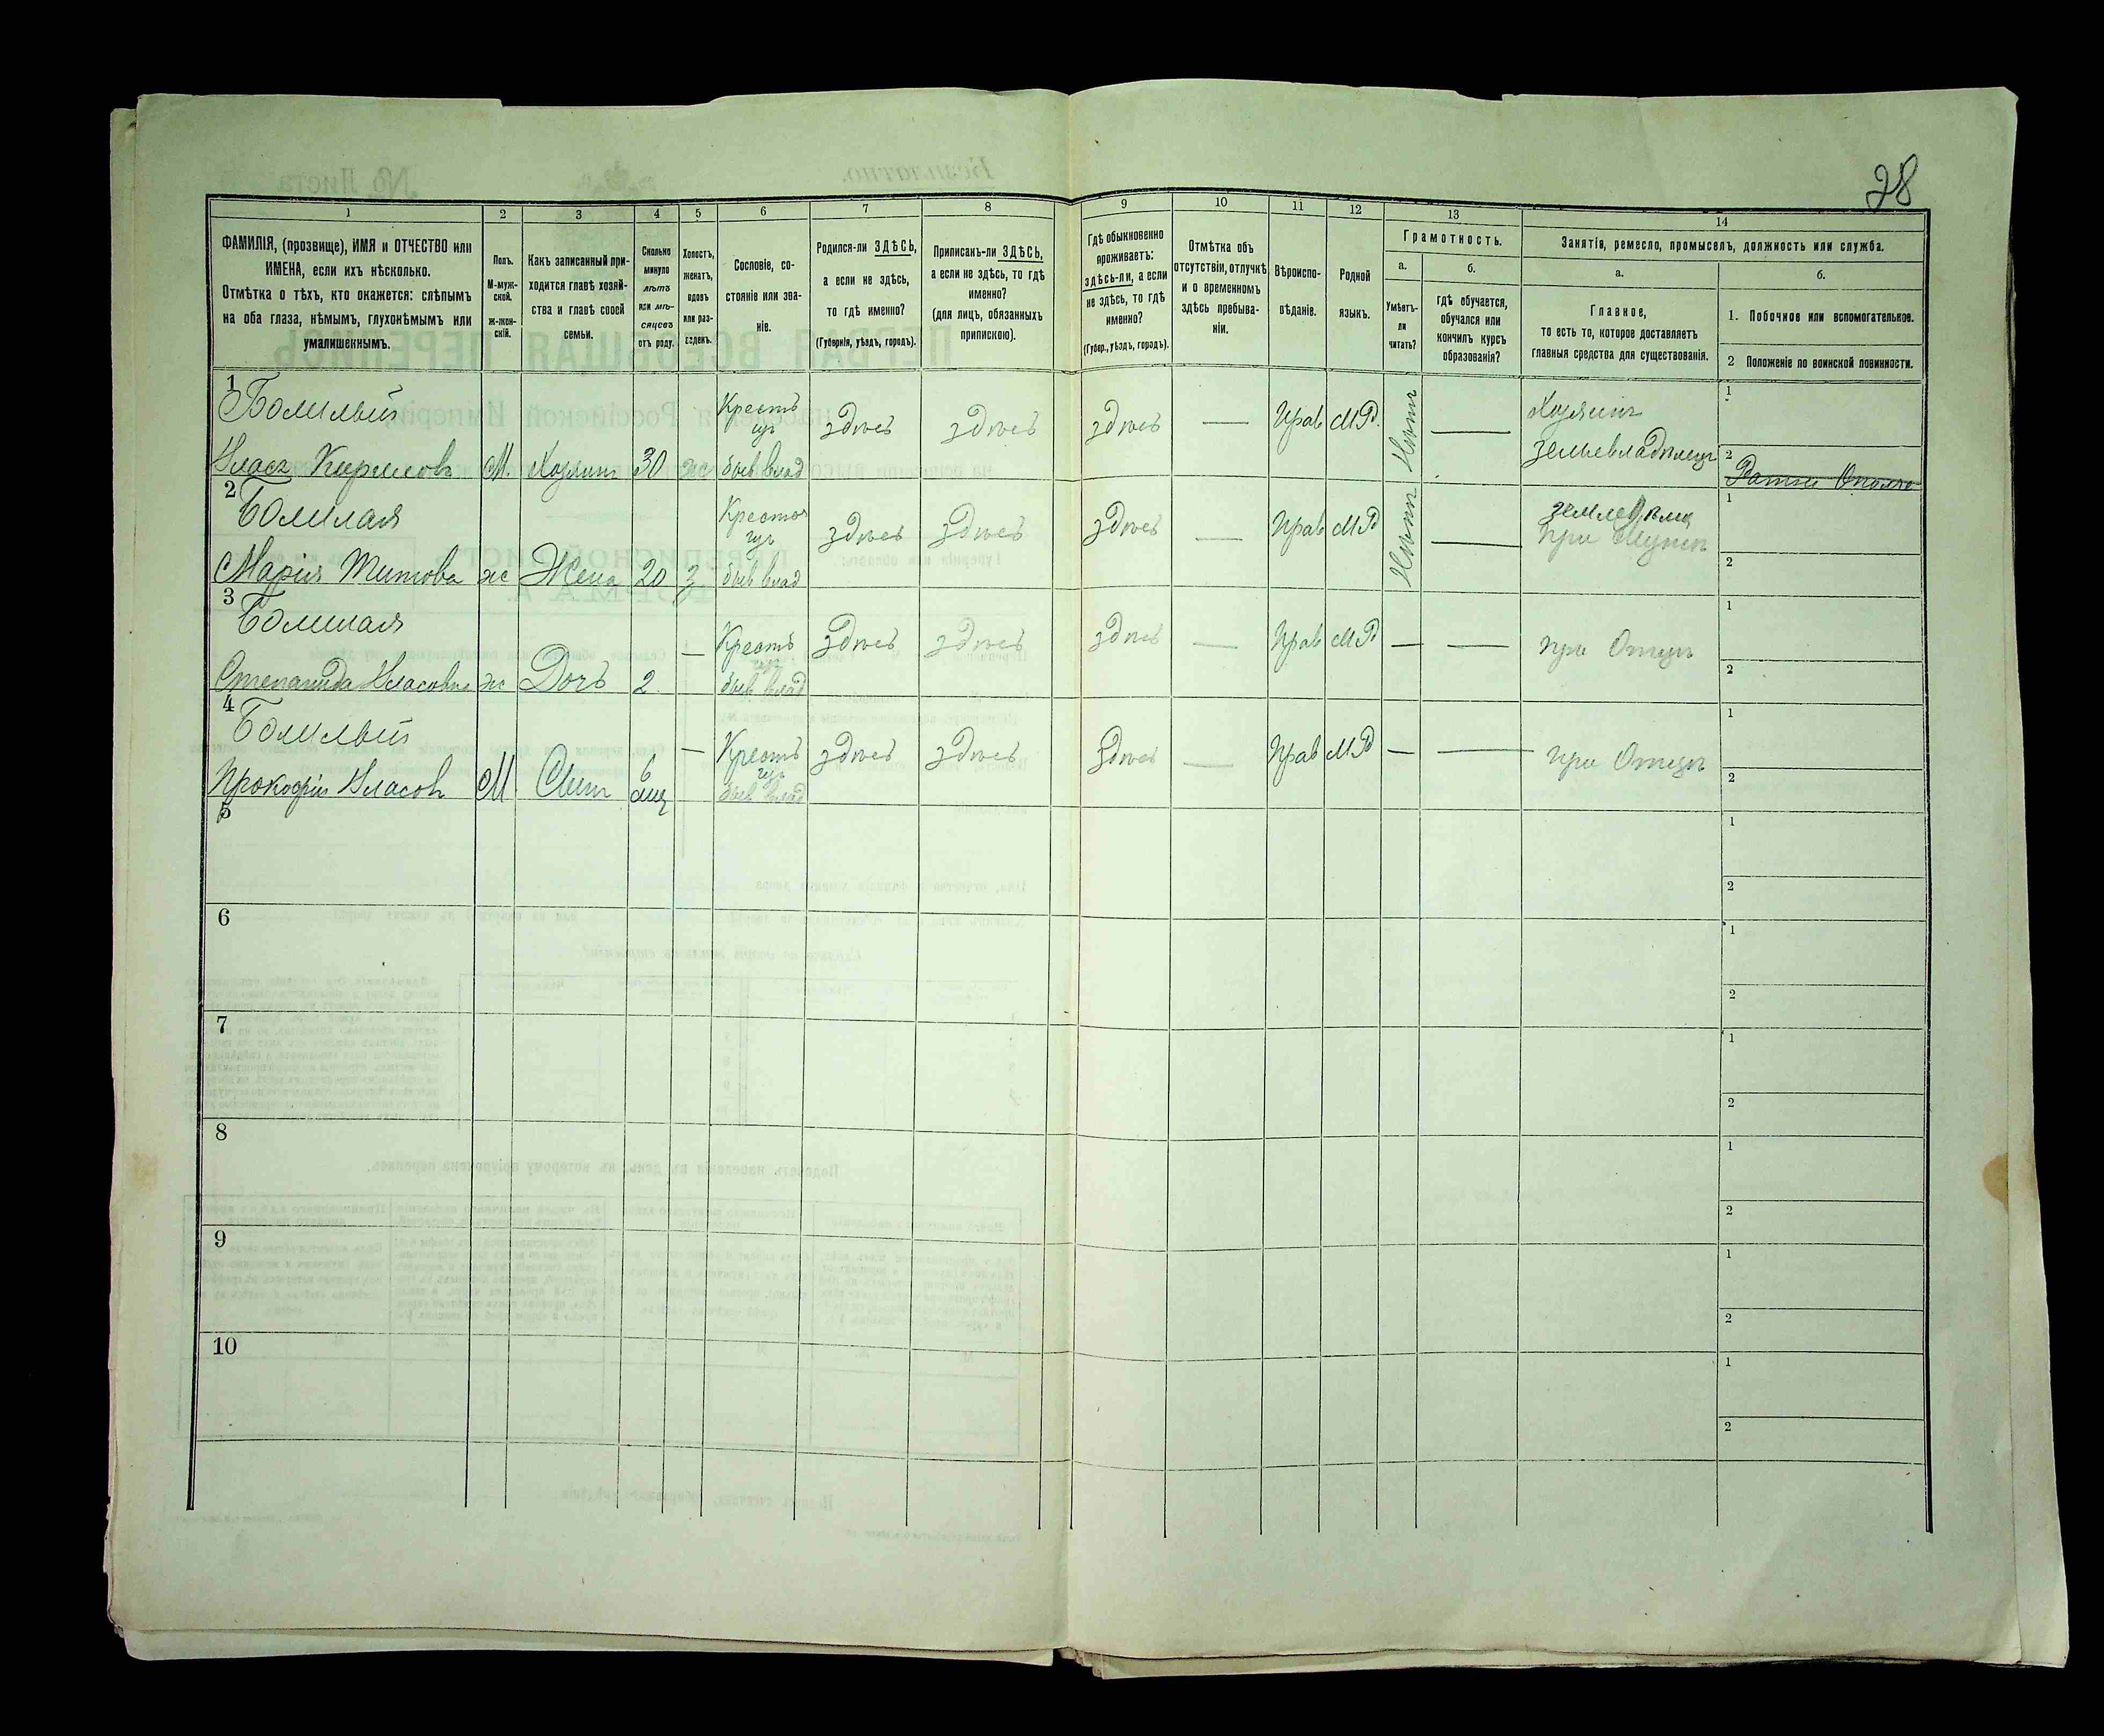 28
1
2
3
4
5
6
7
8
9
10
11
12
13
14
ФАМИЛІЯ, (прозвище), ИМЯ и ОТЧЕСТВО или
ИМЕНА, если ихъ нѣсколько.
Отмѣтка о тѣхъ, кто окажется: слѣпымъ
на оба глаза, нѣмымъ, глухонѣмымъ или
умалишеннымъ.
Полъ.
М-муж-
ской.
ж-жен-
скій.
Какъ записанный при-
ходится главѣ хозяй-
ства и главѣ своей
семьи.
Сколько
минуло
лѣтъ
или мѣ-
сяцевъ
отъ роду.
Холостъ,
женатъ,
вдовъ
или раз-
веденъ.
Сословіе, со-
стояніе или зва-
ніе.
Родился-ли ЗДѢСЬ,
а если не здѣсь,
то гдѣ именно?
(Губернія, уѣздъ, городъ).
Приписанъ-ли ЗДѢСЬ,
а если не здѣсь, то гдѣ
именно?
(для лицъ, обязанныхъ
припискою).
Гдѣ обыкновенно
проживаетъ:
здѣсь-ли, а если
не здѣсь, то гдѣ
именно?
(Губер., уѣздъ, городъ).
Отмѣтка объ
отсутствіи, отлучкѣ
и о временномъ
здѣсь пребыва-
ніи.
Вѣроиспо-
вѣданіе.
Родной
языкъ.
Грамотность.
а.
Умѣетъ-
ли
читать?
б.
гдѣ обучается,
обучался или
кончилъ курсъ
образованія?
Занятія, ремесло, промыселъ, должность или служба.
а.
Главное,
то есть то, которое доставляетъ
главныя средства для существованія.
б.
1. Побочное или вспомогательное.
2 Положеніе по воинской повинности.
1
Крестъ
здѣсь здѣсь здѣсь — Прав МР. Нѣтъ — Хозяинъ
землевладѣлецъ
Власъ М. Хозяинъ 30 ж быв влад
1
2 Ратник Ополче
2
здѣсь здѣсь здѣсь — Прав МР Нѣтъ —
при Мужѣ
Марія Титова ж Жена 20 З быв влад
1
2
3
— Крестъ здѣсь здѣсь здѣсь — Прав МР — — при Отцѣ
Степанида Власовна ж Дочь 2 быв влад
1
2
4
— Крестъ здѣсь здѣсь здѣсь — Прав МР — — при Отцѣ
Прокофій Власовъ М Сынъ 6 мец быв влад
1
2
5
1
2
6
1
2
7
1
2
8
1
2
9
1
2
10
1
2